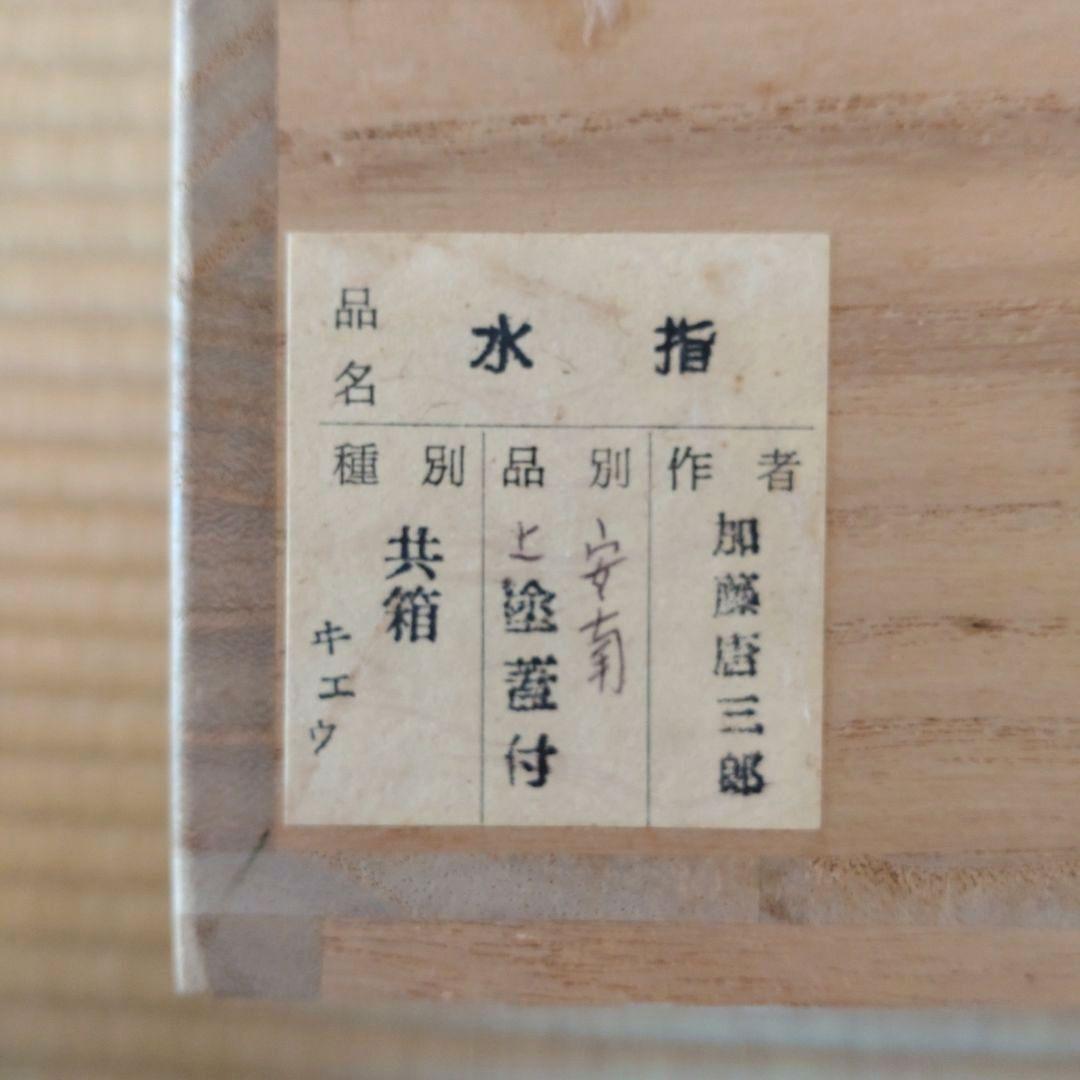 品名 水指
作者
加藤唐三郎
品別
安南
上塗蓋付
種別
共箱
キエウ